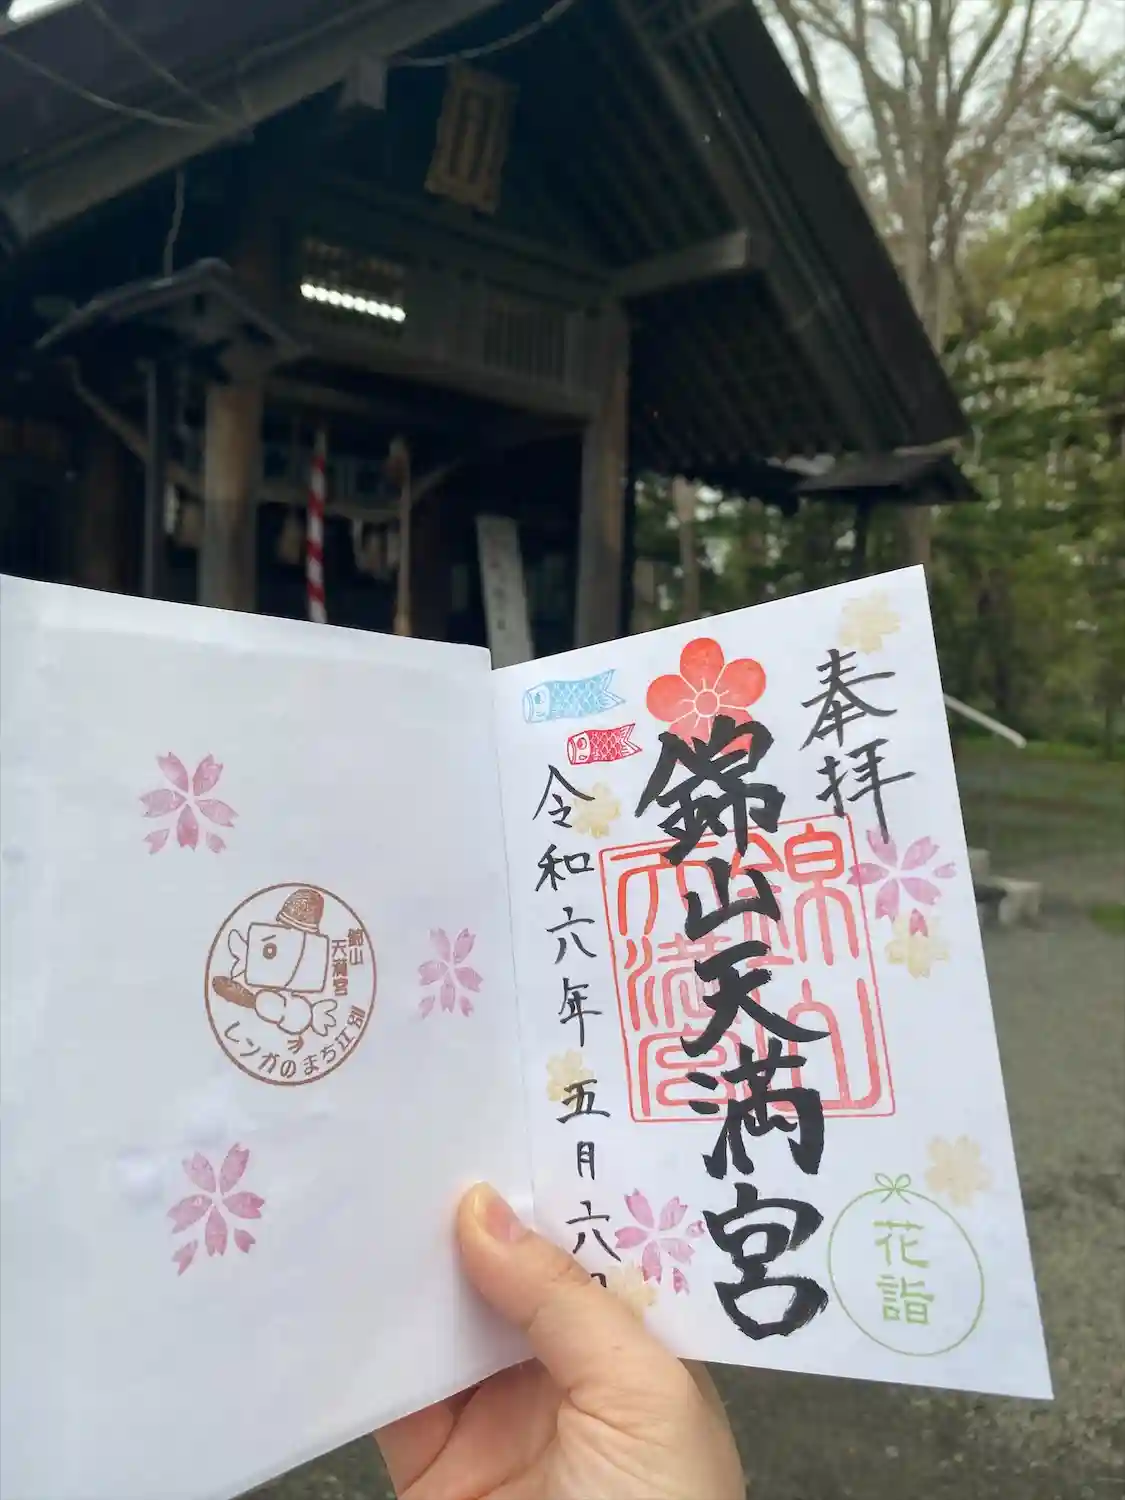 奉拝
錦山天満宮
錦山天満宮
令和六年 五月六日
花詣
錦山
天満宮
レンガのまち江別